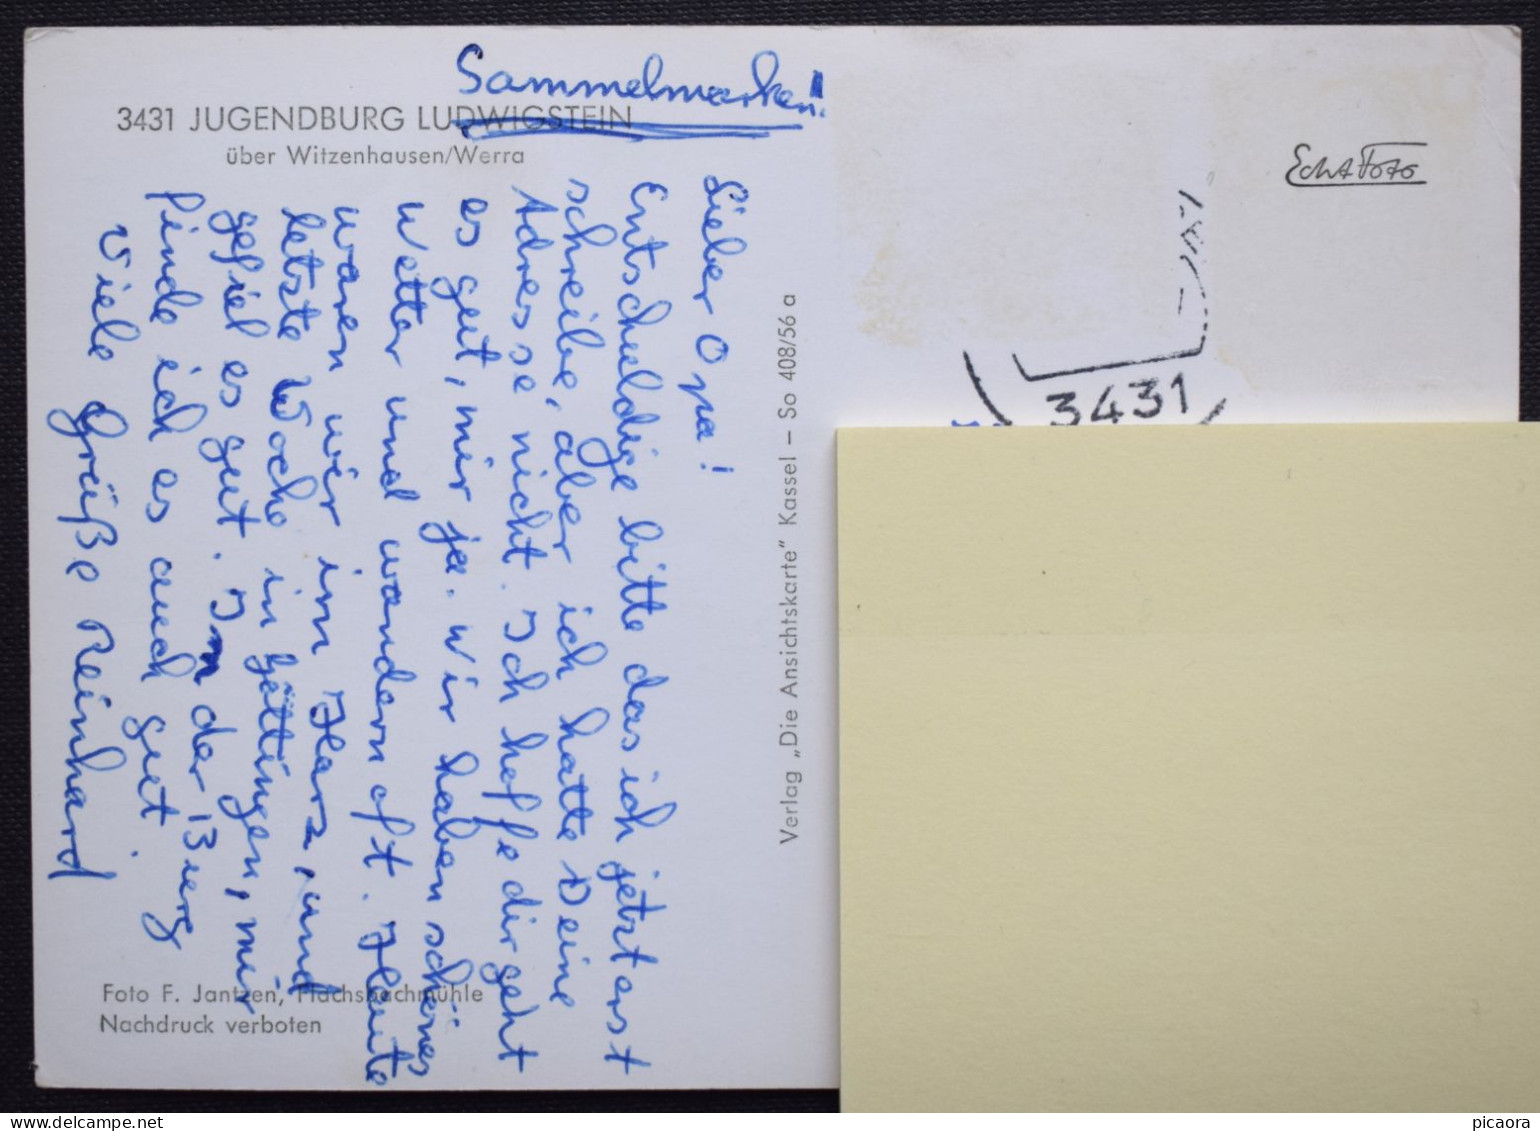 Sammelmarken!
3431 JUGENDBURG LUDWIGSTEIN
über Witzenhausen/Werra
Lieber Opa!
Entschuldige bitte das ich jetzt erst
schreibe, aber ich hatte Deine
Adresse nicht. Ich hoffe dir geht
es gut, mir ja. Wir haben schönes
Wetter und wandern oft. Heute
waren wir im Harz, und
letzte Woche in Göttingen, mir
gefiel es gut. In der Burg
finde ich es auch gut.
Viele Grüße Reinhard
Foto F. Jantzen, Flachsbachmühle
Nachdruck verboten
Verlag „Die Ansichtskarte" Kassel – So 408/56 a
Echt Foto
3431
picaora